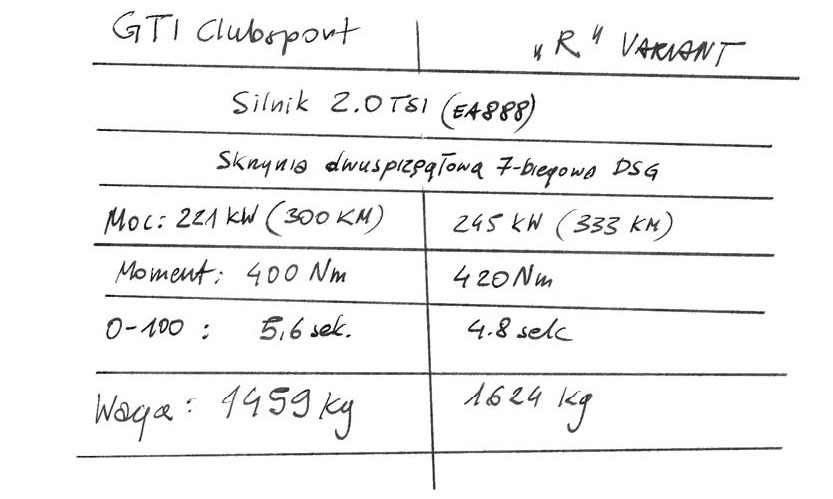 GTI Clubsport „R" VARIANT
Silnik 2.0 TSI (EA888)
Skrzynia dwusprzęgłowa 7-biegowa DSG
Moc: 221 kW (300 KM) 245 kW (333 KM)
Moment: 400 Nm 420 Nm
0-100 : 5,6 sek. 4.8 sek
Waga : 1459 kg 1624 kg